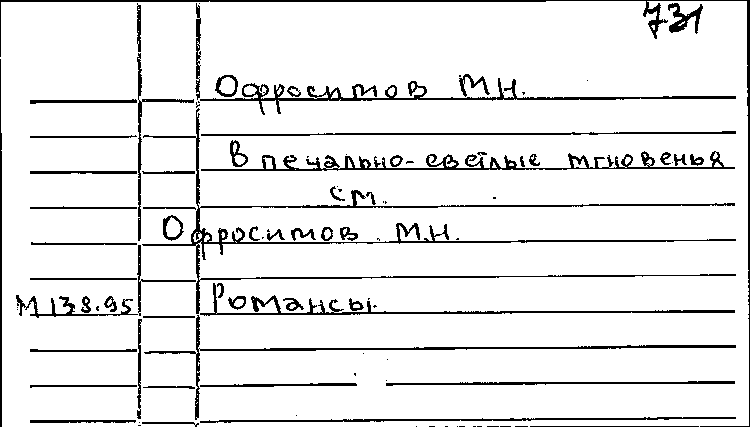 731
Офросимов М.Н.
В печально-светлые мгновенья
см.
Офросимов М.Н.
М 138.95 Романсы.